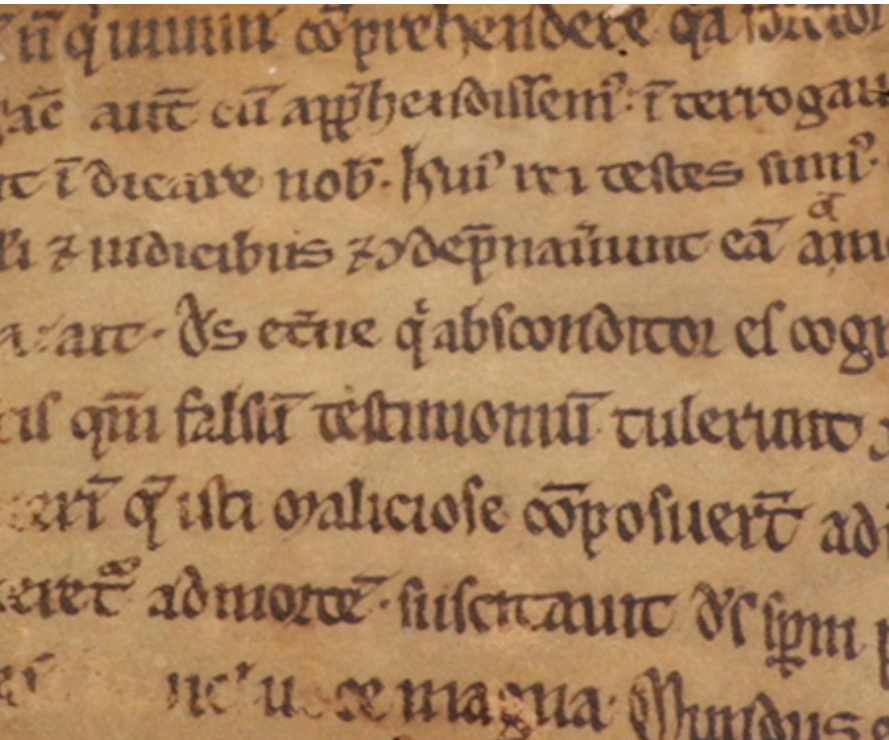 n̄ q̇uiuim᷒ cōp̱rehendere q̄a fortior
hāc aut̄ cū app̄hendissem᷒. ī terrogaui
t īdicare nob̄. hui᷒ rei testes sum᷒.
⁊ iudicib᷒ ⁊ ↄdēpnauerunt eā
ait. d̄s et̄ne q̇ absconditor es cogn
tis qm̄ falsū testimoniū tulerunt ↄ
q̄ isti maliciose cōposuer̄t adu
eret᷒ ad mortē. suscitauit d̄s sp̄m
uoce magna. Mundus